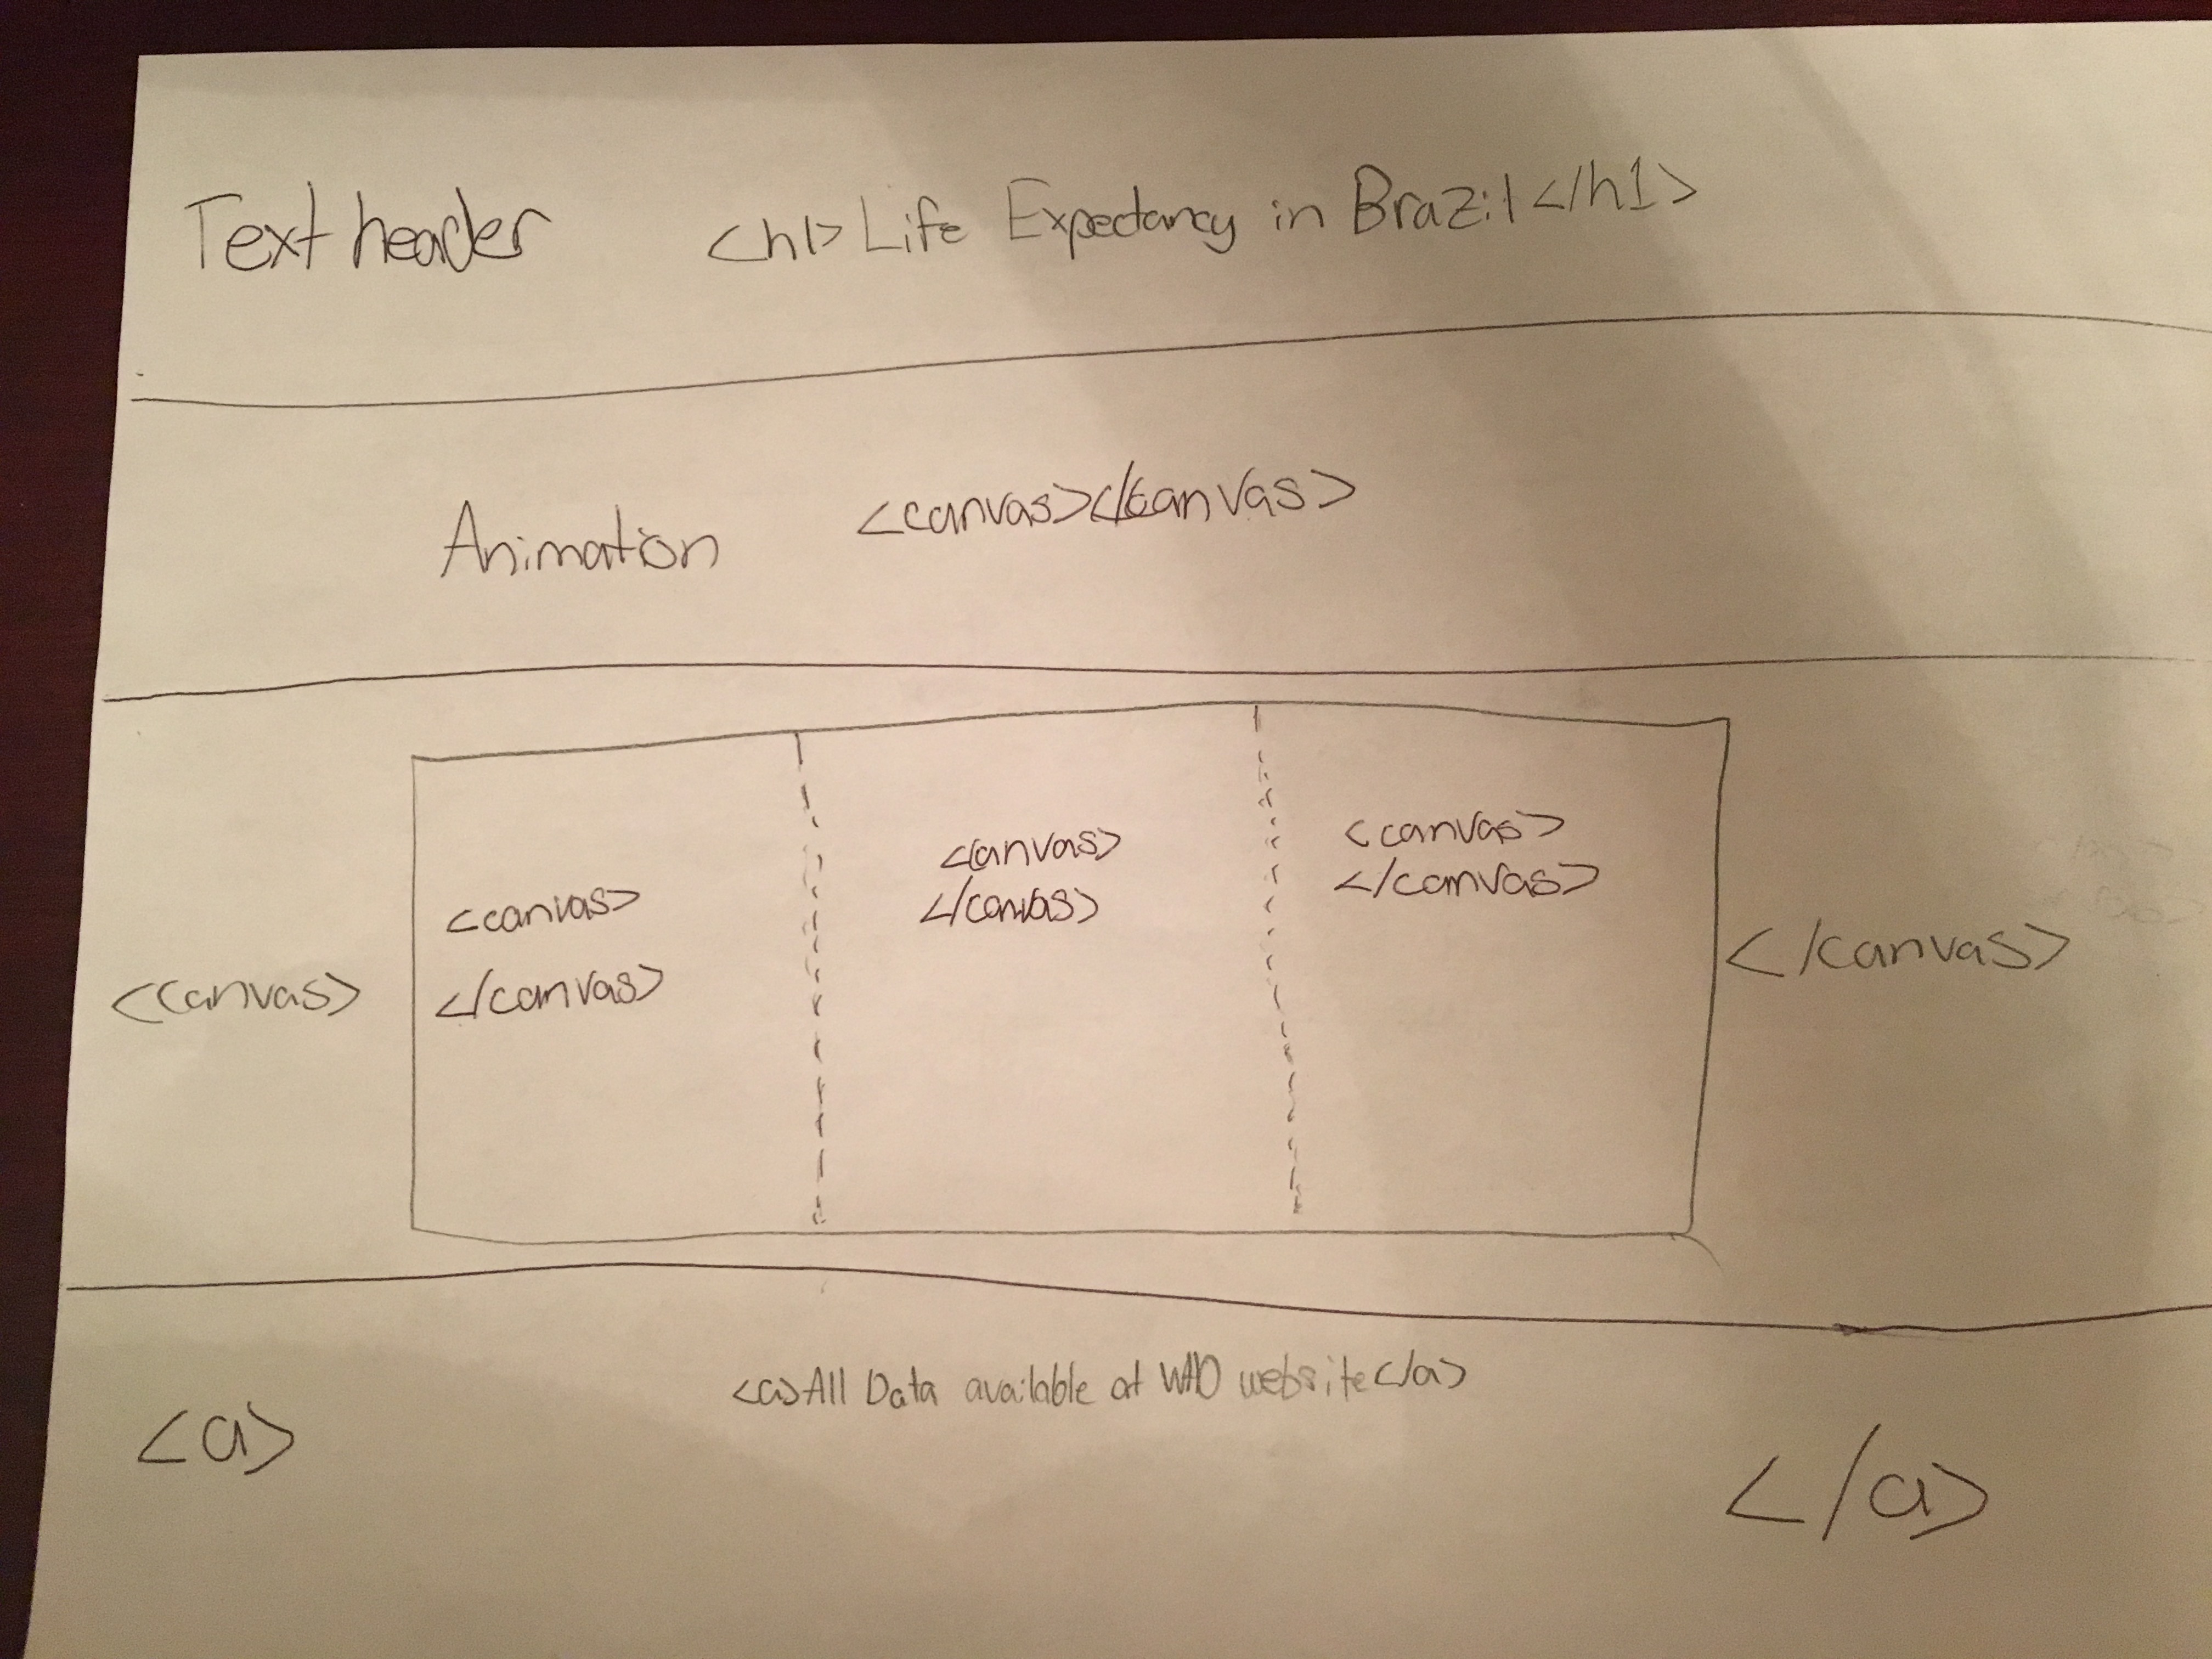 Text header <h1>Life Expectancy in Brazil</h1>
Animation <canvas></canvas>
<canvas>
<canvas>
</canvas>
<canvas>
</canvas>
<canvas>
</canvas>
</canvas>
<a>
<a>All Data available at WHO website</a>
</a>